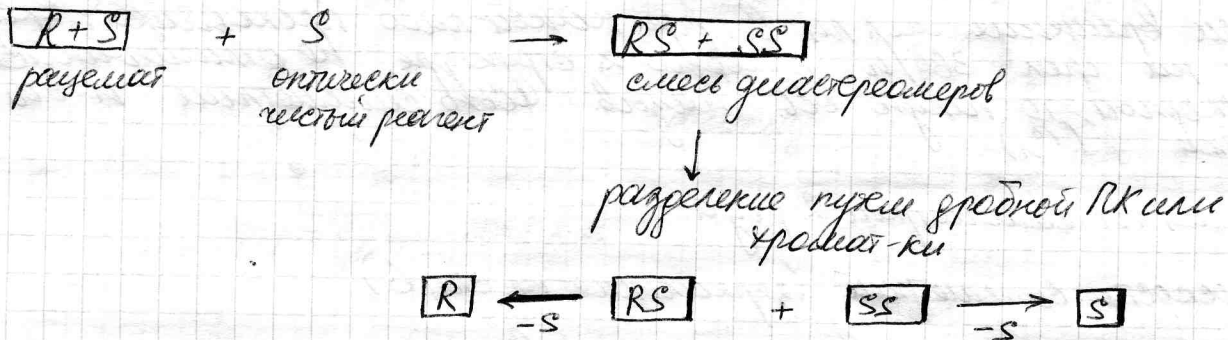 R + S + S → RS + SS
рацемат оптически чистый реагент смесь диастереомеров
↓
разделение путем дробной ПК или
хромат-ки
R ← -S RS + SS → -S S